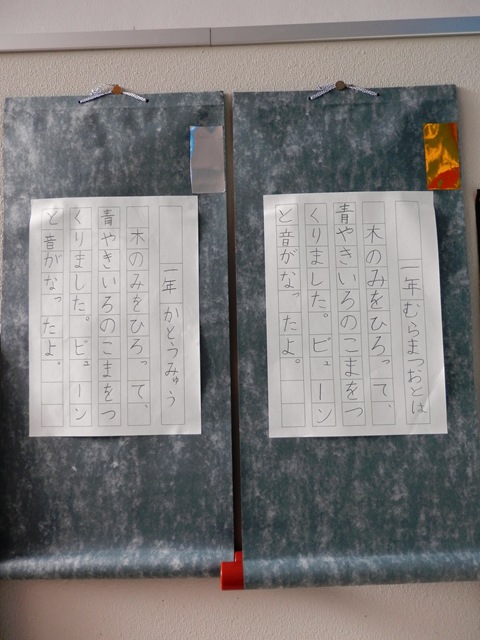 一年 むらまつおとは
木のみをひろって、
青やきいろのこまをつ
くりました。ビューン
と音がなったよ。
一年 かとうみゅう
木のみをひろって、
青やきいろのこまをつ
くりました。ビューン
と音がなったよ。